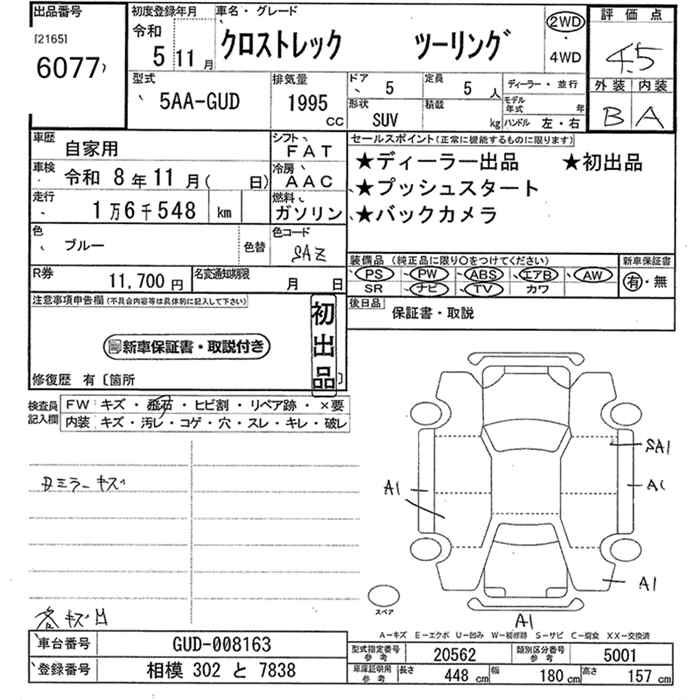 出品番号
[2165]
6077
初度登録年月
令和
5 11 月
車名・グレード
クロストレック ツーリング
2WD
・
4WD
評価点
4.5
外装 内装
B A
型式
5AA-GUD
排気量
1995
CC
ドア
5
定員
5 人
形状
SUV
積載
kg
ディーラー・並行
モデル
年式 年
ハンドル 左・右
車歴
自家用
シフト
FAT
車検
令和 8年11月( 日)
冷房
AAC
走行
1万6千548 km
燃料
ガソリン
色
ブルー
色替
色コード
SAZ
R券
11,700 円
名変通知期限
月 日
セールスポイント(正常に機能するものに限ります)
★ディーラー出品 ★初出品
★プッシュスタート
★バックカメラ
装備品 (純正品に限り○をつけてください)
PS PW ABS エアB AW
SR ナビ TV カワ
新車保証書
有・無
後日品
保証書・取説
注意事項申告欄(不具合内容等は具体的に記入して下さい)
新車保証書・取説付き
初出品
修復歴 有〔箇所 〕
検査員
記入欄
FW キズ・飛石・ヒビ割・リペア跡・×要
内装 キズ・汚レ・コゲ・穴・スレ・キレ・破レ
ミラー キズ
キズ
SA1
A1
A1
A1
A1
スペア
A-キズ E-エクボ U-凹み W-補修跡 S-サビ C-腐食 XX-交換済
車台番号
GUD-008163
登録番号
相模 302 と 7838
型式指定番号
参考
20562
類別区分番号
参考
5001
車庫証明用
参考
長さ 448 cm 幅 180 cm 高さ 157 cm